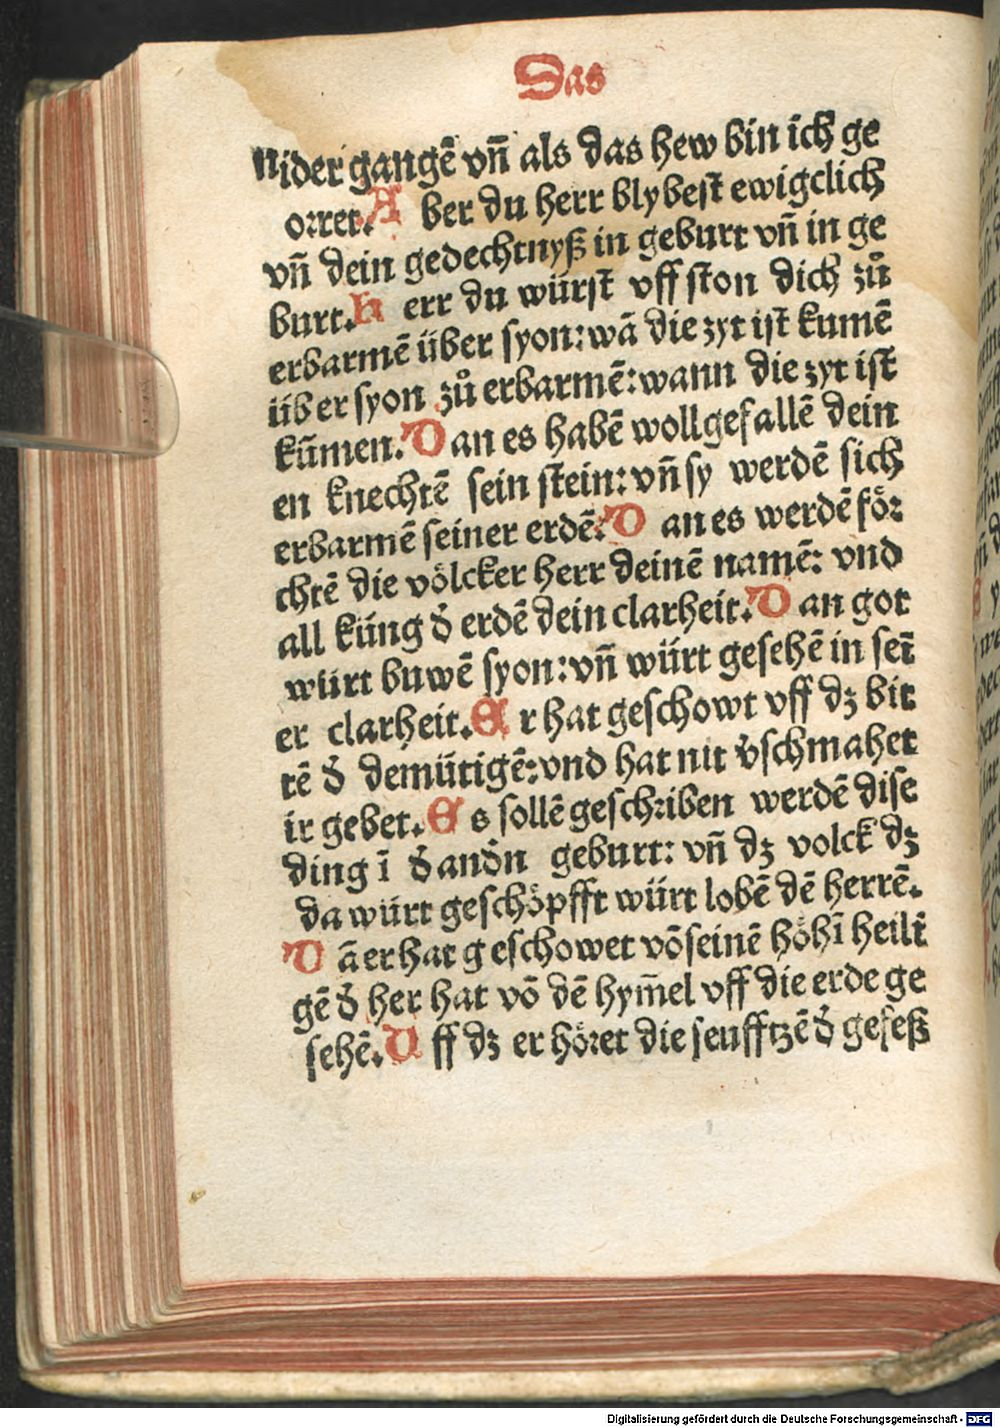 Das
nider gangē vñ als das hew bin ich ge
orret. A ber du herr blybest ewigclich
vñ dein gedechtnyß in geburt vñ in ge
burt. H err du würst vff ston dich zů
erbarmē über syon: wā die zyt ist kumē
über syon zů erbarmē: wann die zyt ist
kūmen. D an es habē wollgefallē dein
en knechtē sein stein: vñ sy werdē sich
erbarmē seiner erdē. D an es werdē för
chtē die völcker herr deinē namē: vnd
all küng d̕ erdē dein clarheit. D an got
würt buwē syon: vñ würt gesehē in seī
er clarheit. E r hat geschowt vff dz bit
tē d̕ demütigē: vnd hat nit v̕schmahet
ir gebet. E s sollē geschriben werdē dise
ding ī d̕ andn̄ geburt: vñ dz volck dz
da würt geschöpfft würt lobē dē herrē.
D ā er hat geschowet vō seinē höhī heili
gē d̕ her hat vō dē hym̄el vff die erde ge
sehē. V ff dz er höret die seufftzē d̕ gefeß
Digitalisierung gefördert durch die Deutsche Forschungsgemeinschaft - DFG